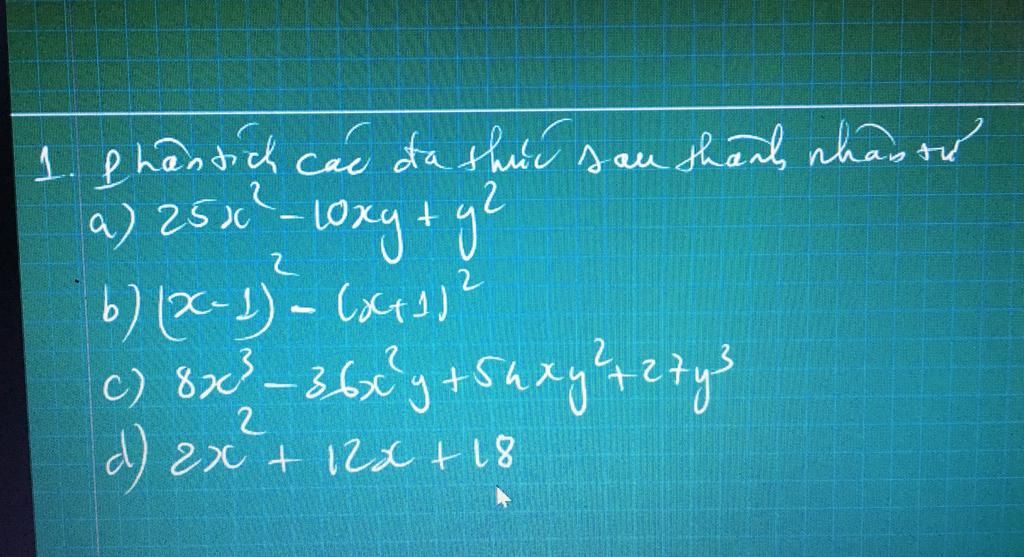 1. Phân tích các đa thức sau thành nhân tử
a) 25x² - 10xy + y²
b) (x-1)² - (x+1)²
c) 8x³ - 36x²y + 54xy² + 27y³
d) 2x² + 12x + 18